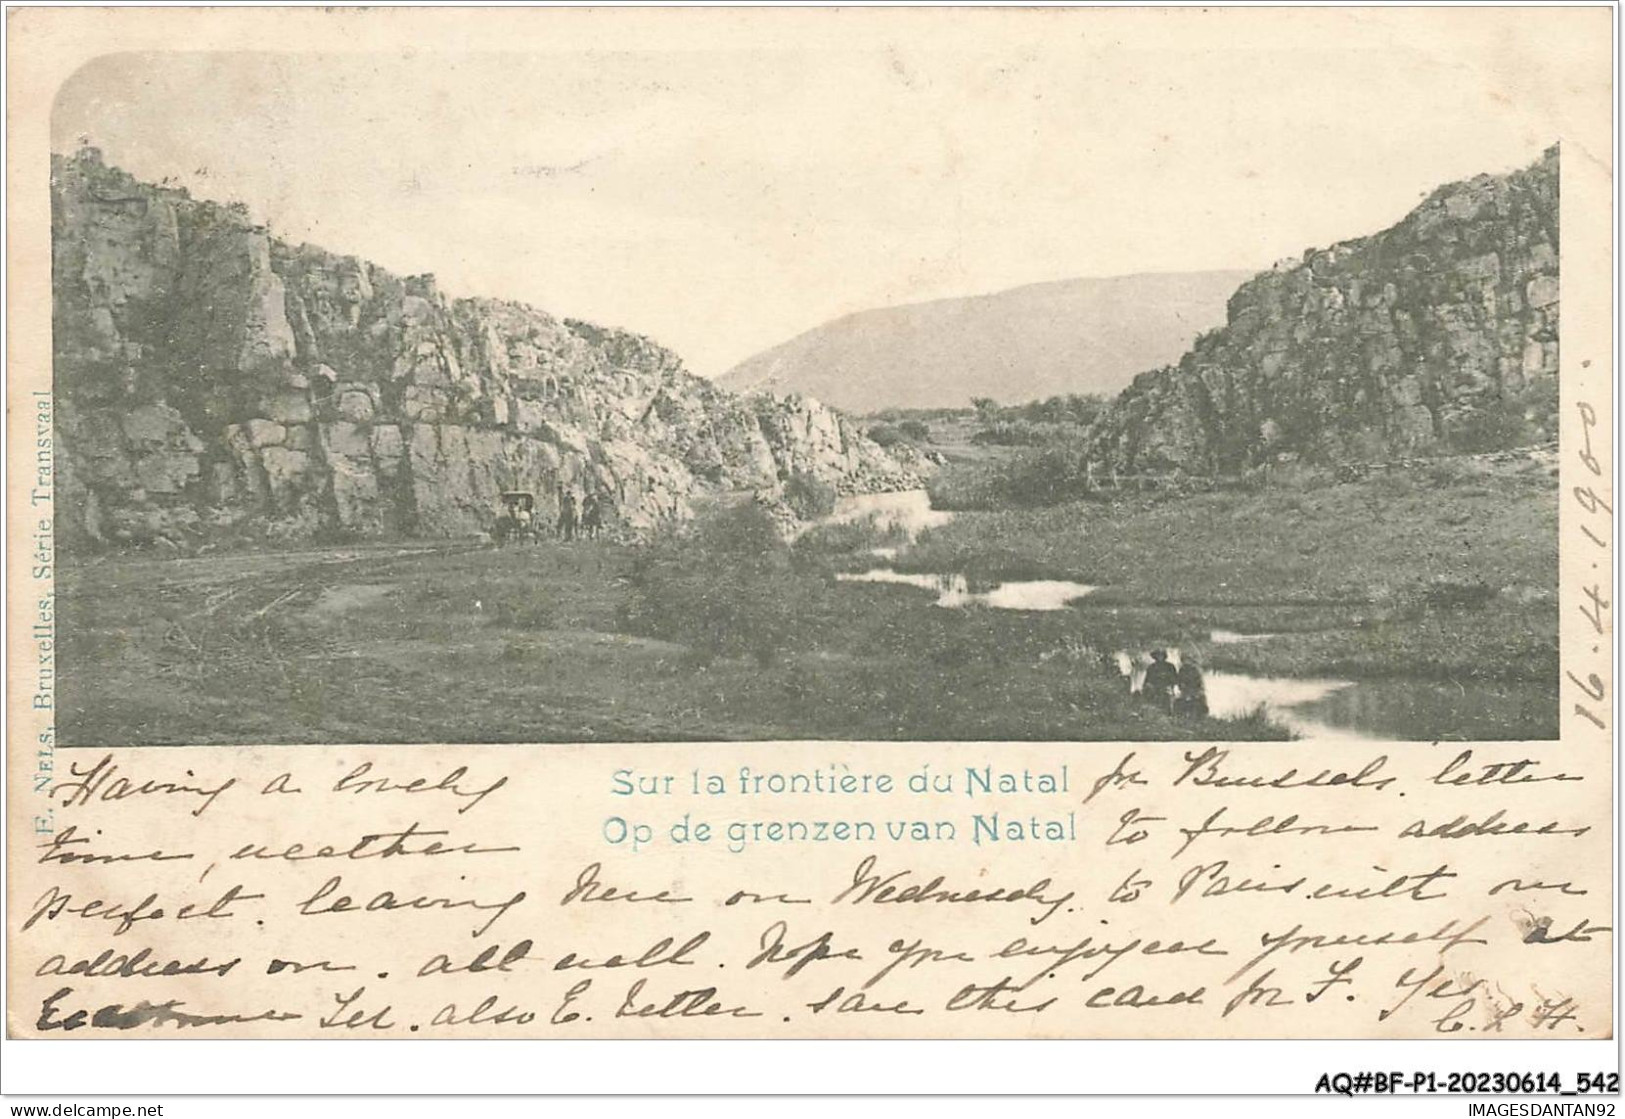 E. NELS, Bruxelles, Série Transvaal
16.4.1900.
Sur la frontière du Natal
Op de grenzen van Natal
Having a lovely
time, weather
perfect. leaving here on Wednesday
address on. all well. hope you enjoyed yourself at
also E. letter. save this card for F. Yrs.
C. L H.
for Brussels. letter
to follow address
to Paris will on
AQ#BF-P1-20230614_542
delcampe.net
IMAGESDANTAN92